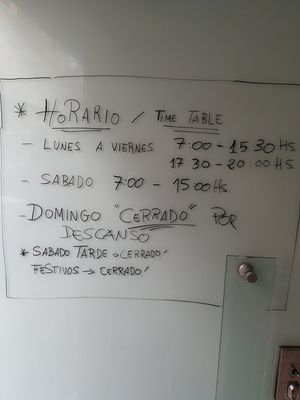 * HORARIO / TIME TABLE
- LUNES A VIERNES 7:00 - 15 30 HS
17:30 - 20:00 HS.
- SABADO 7:00 - 15:00 HS
- DOMINGO "CERRADO" POR
DESCANSO
* SABADO TARDE → CERRADO!
FESTIVOS → CERRADO!